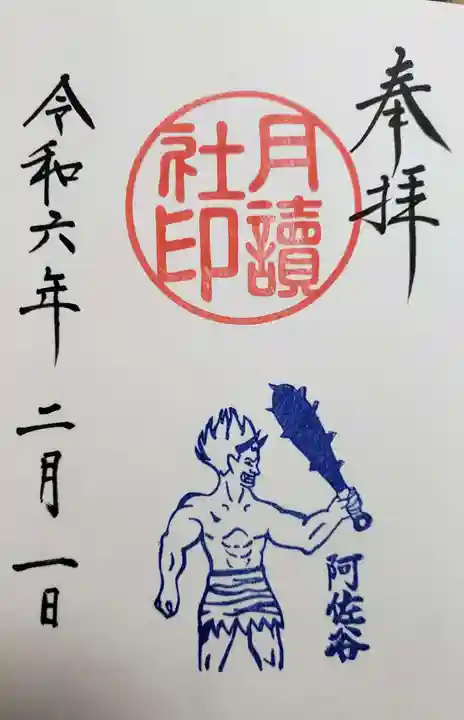 奉拝
月讀
社印
阿佐谷
令和六年 二月一日